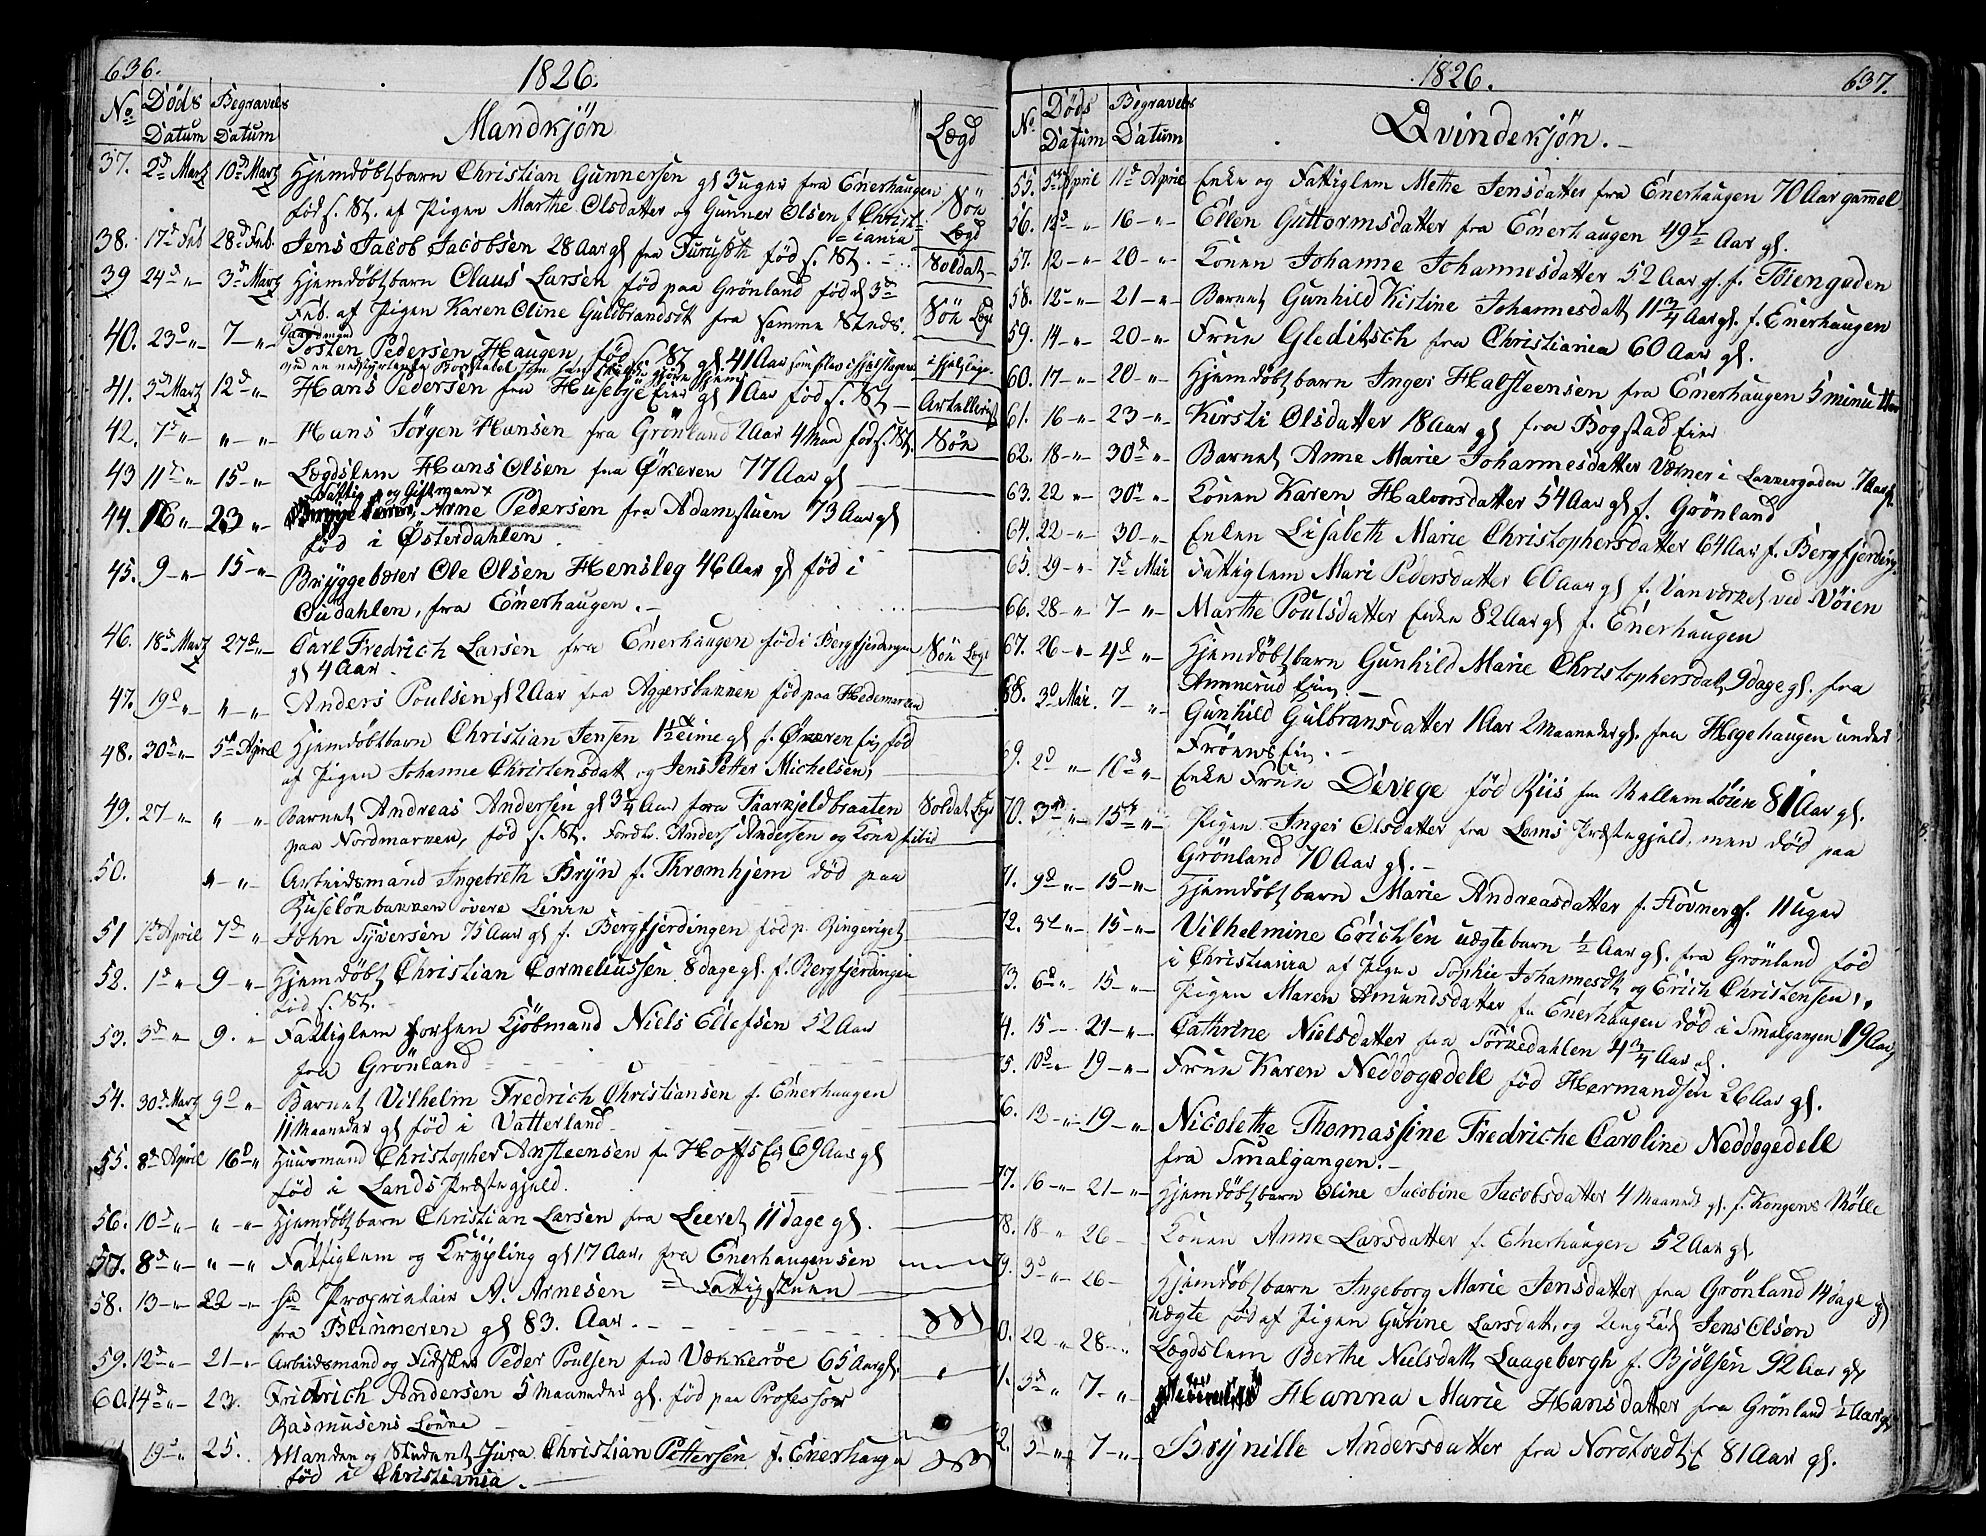 636.
1826.
No Døds Datum Begravels Datum Mandkjön Lægd
37. 2d Martz 10d Martz Hjemdöbt barn Christian Gunnersen gl 3 uger fra Enerhaugen Søn
fød s. St. af Pigen Marthe Olsdatter og Gunner Olsen f Christ=
=iania Lægd
38. 17d Feb 28d Feb. Jens Jacob Jacobsen 28 Aar gl fra Furuseth fød s. St. Soldat
39 24d " 3d Martz Hjemdöbt barn Claus Larsen fød paa Grönland fød d 3d
Feb. af Pigen Karen Oline Guldbrandsdt fra samme Steds. Søn Lægd
Gaardmand
40. 23d " 7 " Tosten Pedersen Haugen, fød s. St gl 41 Aar som blev ihjelslagen i Hjelslage
41. 3d Martz 12d " Hans Pedersen fra Husebye Eier gl 1 Aar fød s. St Artelleriet
42. 7d " " " Hans Jörgen Hansen fra Grönland 2 Aar 4 Mand fød s. St. Søn
43 11d " 15 " Lægdslem Hans Olsen fra Økeren 77 Aar gl
Fattig og Giftman
44. 16 " 23 " Arne Pedersen fra Adamstuen 73 Aar gl
fød i Østerdahlen.
45. 9 " 15 " Bryggebærer Ole Olsen Hensleg 46 Aar gl fød i
Oudahlen, fra Enerhaugen.
46. 18d Martz 27d " Carl Fredrich Larsen fra Enerhaugen fød i Bergfjerdingen Søn Lægd
gl 4 Aar
47. 19d " " " Anders Poulsen gl 2 Aar fra Aggersbakken fød paa Hedemarken
48. 30d " 5d April Hjemdöbt barn Christian Jensen 1½ time gl f. Økeren Eie, fød
af Pigen Johanne Christensdatt og Jens Petter Michelsen,
49. 27 " " " Barnet Andreas Andersen gl 3¼ Aar fra Faarkjeldbraaten Soldat Lægd
paa Nordmarken, fød s. St. Foræld. Anders Andersen og Kone
50. " " Arbeidsmand Ingebreth Bryn f. Thromhjem död paa
Ruselökbakken øvere Linie
51 1d April 7d " John Syversen 75 Aar gl f. Bergfjerdingen fød p. Ringeriget
52. 1d " 9 " Hjemdöbt Christian Corneliussen 8 dage gl. f. Bergfjerdingen
fød s. St.
53. 3d " 9. " Fattiglem forhen Kjöbmand Niels Ellefsen 52 Aar
fra Grönland
54. 30d Martz 9d " Barnet Vilhelm Fredrich Christiansen f. Enerhaugen
11 Maaneder gl fød i Vatterland
55. 8d April 16d " Huusmand Christopher Ansteensen fr Hoffs Eie 69 Aar gl
fød i Lands Præstegjeld.
56. 10d " " " Hjemdöbt barn Christian Larsen fra Leeret 11 dage gl.
57. 8d " " " Fattiglem og Krypling gl 17 Aar, fra Enerhaugensen
58. 13 " 22 " hr Proprietair A. Arnesen = Fattigstuen
fra Blinneren gl 83. Aar.
59. 12d " 21 " Arbeidsmand og Fidsker Peder Poulsen fra Vækkeröe 65 Aar gl.
60. 14d " 23. Fridrich Andersen 5 Maaneder gl. fød paa Professor
Rasmusens Løkke
19d " 25. Manden og Student Jura Christian Pettersen f. Enerhaugen
fød i Christiania.
1826.
637.
No Døds Datum Begravels Datum Qvindekjön.
55. 5d April 11d April Enke og Fattiglem Methe Jensdatter fra Enerhaugen 70 Aar gammel
56. 12d " 16 " Ellen Guttormsdatter fra Enerhaugen 49½ Aar gl.
57. 12 " 20 " Konen Johanne Johannesdatter 52 Aar gl. f. Töiengaden
58. 12 " 21 " Barnet Gunhild Kirstine Johannesdatt 11¾ Aar gl. f. Enerhaugen
59. 14 " 20 " Fruen Gleditsch fra Christiania 60 Aar gl.
60. 17 " 20 " Hjemdöbt barn Inger Halfsteensen fra Enerhaugen 5 minutter
61. 16 " 23 " Kirsti Olsdatter 18 Aar gl fra Bogstad Eier
62. 18 " 30d " Barnet Anne Marie Johannesdatter Værner i Lakkergaden 7 Aar gl.
63. 22 " 30 " Konen Karen Halvorsdatter 54 Aar gl f. Grönland
64. 22 " 30 " Enken Lisabeth Marie Christophersdatter 64 Aar f. Bergfjerding.
65. 29 " 7d Mai Fattiglem Mari Pedersdatter 60 Aar gl f. Vanværket ved Vöien
66. 28 " 7 " Marthe Poulsdatter Enke 82 Aar gl f. Enerhaugen
67. 26 " 4d " Hjemdöbt barn Gunhild Marie Christophersdat, 9 dage gl. fra
Ammerud Eier.
68. 3d Mai. 7 " Gunhild Gulbransdatter 1 Aar 2 Maaneder gl. fra Hegehaugen under
Frönns Eier.
69. 2d " 10d " Enke Fruen Devege fød Riis fra Mellem Töien 81 Aar gl.
70. 3d " 15d " Pigen Inger Olsdatter fra Loms Præstegjeld, men död paa
Grönland 70 Aar gl.
71. 9d " 15d " Hjemdöbt barn Marie Andreasdatter f. Hovner gl. 11 uger
72. 3d " 15 " Vilhelmine Erichsen uægte barn ½ Aar gl. fra Grönland fød
i Christiania af Pigen Sophie Johannesdt og Erich Christensen
73. 6d " 15 " Pigen Maren Amundsdatter fra Enerhaugen død i Smalgangen 19 Aar
74. 15 21 " Cathrine Nielsdatter fra Sörkedahlen 4¾ Aar gl.
75. 10d " 19 " Fruen Karen Neddogedell fød Hermandsen 26 Aar gl.
76. 13 " 19 " Nicolethe Thomassine Fredriche Caroline Neddogedell
fra Smalgangen.
77. 16 " 21 " Hjemdöbt barn Oline Jacobine Jacobsdatter 4 Maaned gl. f. Kongens Mölle
78. 18 " 26 Konen Anne Larsdatter f. Enerhaugen 52 Aar gl.
79. 3d " 26 Hjemdöbt barn Ingeborg Marie Jensdatter fra Grönland 14 dage gl
uægte fød af Pigen Gurine Larsdatt, og Ung Karl Jens Olson
80. 22 " 28 " Lægdslem Berthe Nielsdatt Laagebergh f. Bjölsen 92 Aar gl
81. 3d " 7 " Hanna Marie Hansdatter fra Grönland ½ Aar gl
82. 3 " 7 " Brynille Andersdatter fra Nordtvedt 81 Aar gl.